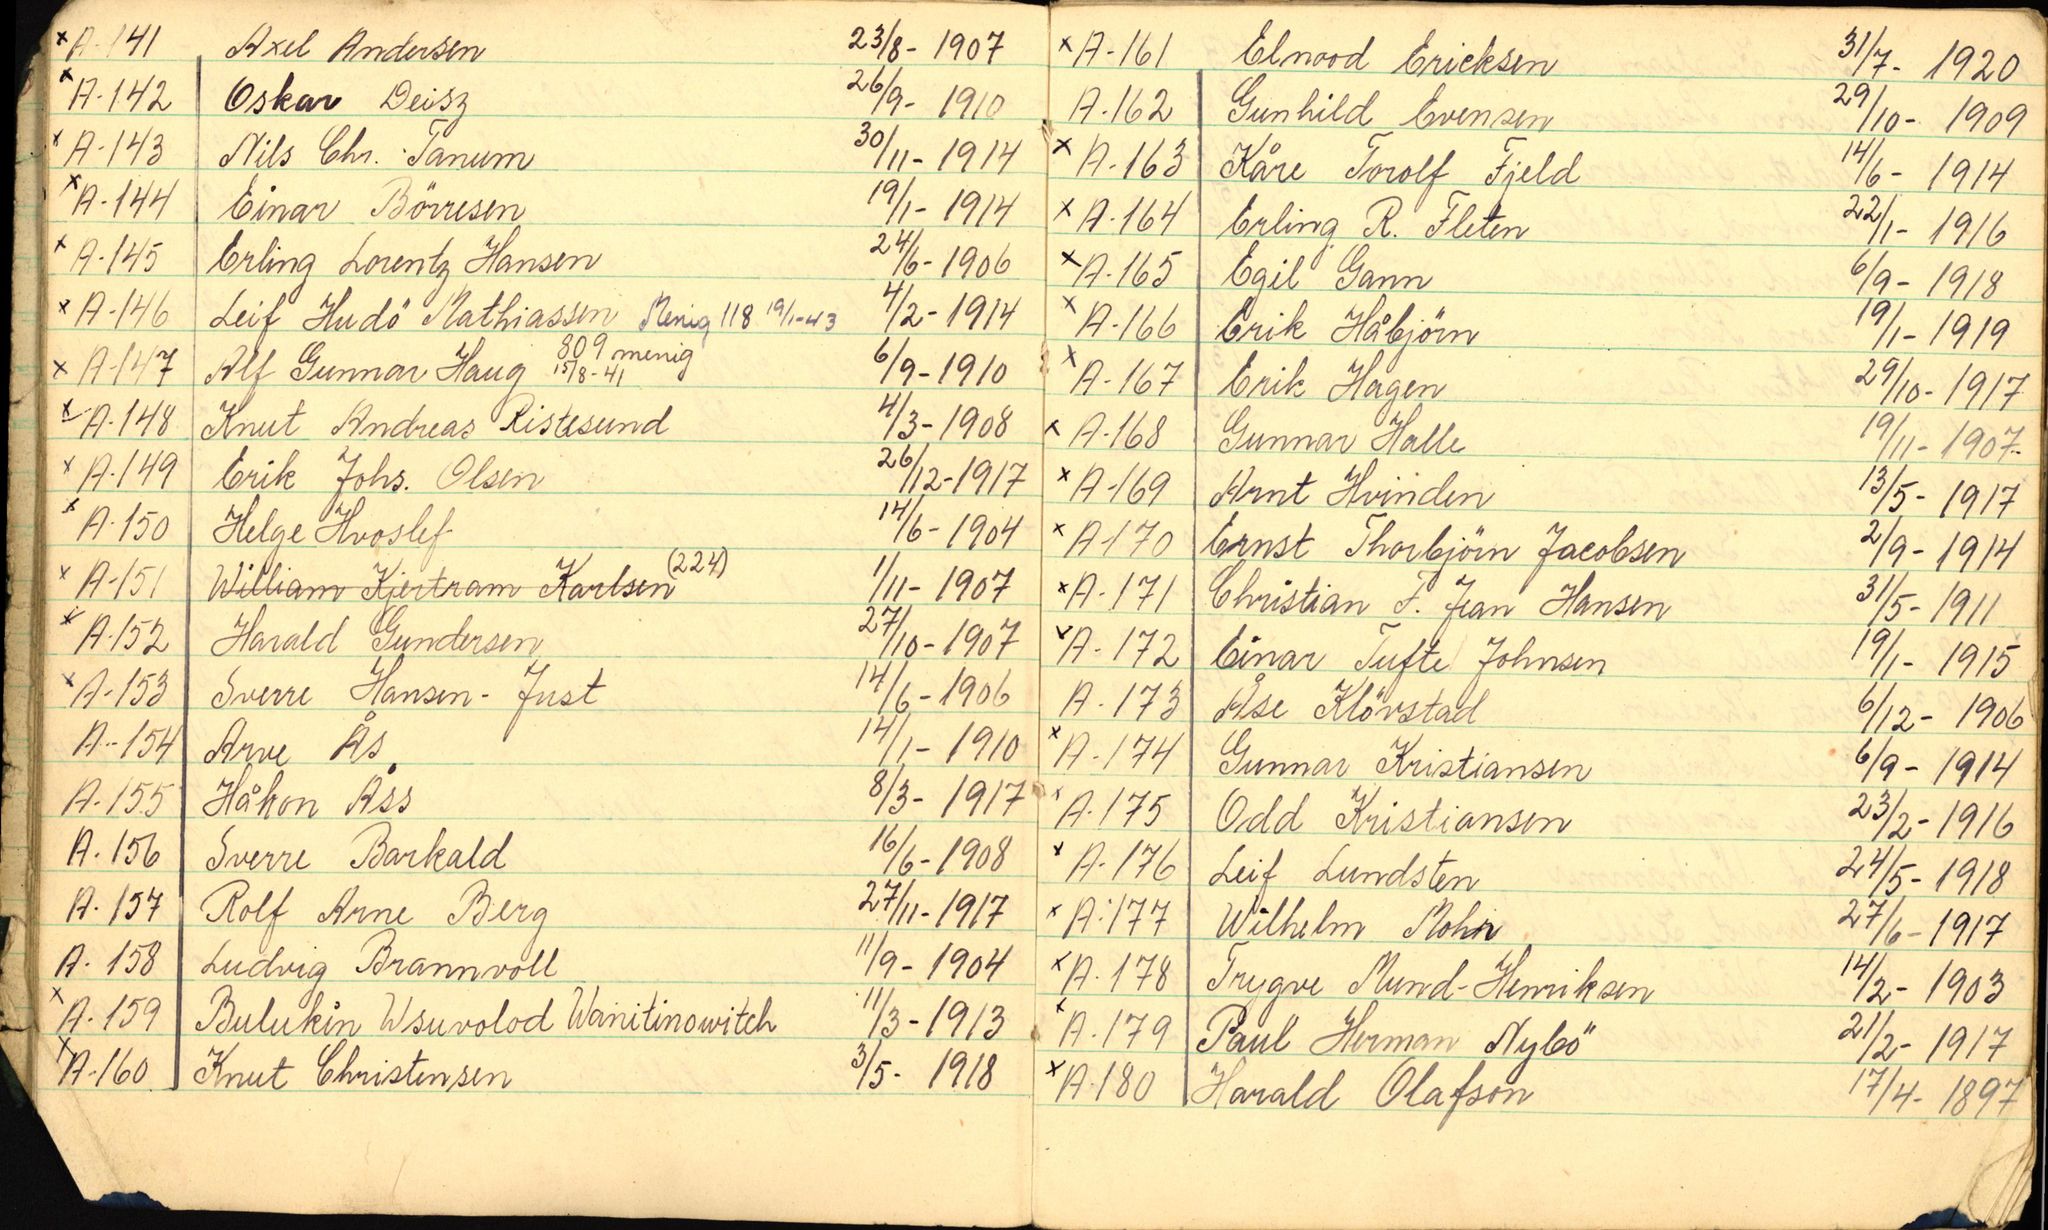 x A-141 Axel Andersen 23/8- 1907
x A-142 Oskar Deisz 26/9- 1910
x A-143 Nils Chr. Tanum 30/11- 1914
x A-144 Einar Börresen 19/1- 1914
x A-145 Erling Lorentz Hansen 24/6- 1906
x A-146 Leif Hudö Mathiassen Menig 118 19/1-43 4/2- 1914
x A-147 Alf Gunnar Haug 809 menig 15/8-41 6/9- 1910
x A-148 Knut Andreas Ristesund 4/3- 1908
x A-149 Erik Johs. Olsen 26/12-1917
x A-150 Helge Hvoslef 14/6- 1904
x A-151 William Kjertram Karlsen (224) 1/11- 1907
x A-152 Harald Gundersen 27/10-1907
x A-153 Sverre Hansen-Just 14/6- 1906
A-154 Arve Ås 14/1- 1910
A-155 Håkon Åss 8/3- 1917
A-156 Sverre Barkald 16/6- 1908
A-157 Rolf Arne Berg 27/11-1917
A-158 Ludvig Brannvoll 11/9- 1904
x A-159 Bulukin Wsuvolod Wanitinowitch 11/3- 1913
x A-160 Knut Christensen 3/5- 1918
x A-161 Elnood Ericksen 31/7- 1920
A-162 Gunhild Evensen 29/10- 1909
x A-163 Kåre Torolf Fjeld 14/6- 1914
x A-164 Erling R. Fleten 22/1- 1916
x A-165 Egil Gann 6/9- 1918
x A-166 Erik Håbjörn 19/1- 1919
x A-167 Erik Hagen 29/10- 1917
x A-168 Gunnar Halle 19/11- 1907-
x A-169 Arnt Hvinden 13/5- 1917
x A-170 Ernst Thorbjörn Jacobsen 2/9- 1914
x A-171 Christian F. Jean Hansen 31/5- 1911
x A-172 Einar Tufte Johnsen 19/1- 1915
A-173 Åse Klövstad 6/12- 1906
x A-174 Gunnar Kristiansen 6/9- 1914
x A-175 Odd Kristiansen 23/2- 1916
x A-176 Leif Lundsten 24/5- 1918
x A-177 Wilhelm Mohr 27/6- 1917
x A-178 Trygve Mund-Henriksen 14/2- 1903
x A-179 Paul Herman Nybö 21/2- 1917
x A-180 Harald Olafson 17/4- 1897